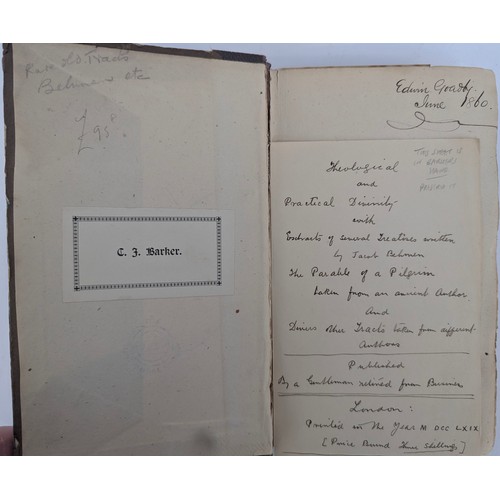 Rare Tracts
Behmen etc
£95
C. J. Barker.
Edwin Goadby
June 1860.
THIS SHEET IS
IN BARKER'S
HAND
Theological
and
Practical Divinity
with
Extracts of several Treatises written
by Jacob Behmen
The Parable of a Pilgrim
taken from an ancient Author
And
Divers other Tracts taken from different
Authors
Published
By a Gentleman retired from Business
London:
Printed in the Year M DCC LXIX
[Price Bound Three Shillings]